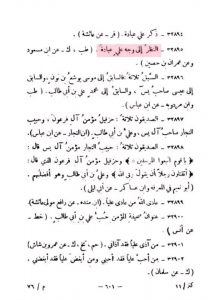 ٣٢٨٩٤ - ذكر علي عبادة . ( فر - عن عائشة )
٣٢٨٩٥ - النظر إلى وجه علي عبادة . ( طب ، ك - عن ابن مسعود
وعن عمران بن حصين )
٣٢٨٩٦ - السبق ثلاثة : فالسابق إلى موسى يوشع بن نون ، والسابق
إلى عيسى صاحب يس ، والسابق إلى محمد علي بن أبي طالب . ( طب
وابن مردويه - عن ابن عباس )
٣٢٨٩٧ - الصديقون ثلاثة : حزقيل مؤمن آل فرعون ، وحبيب
النجار صاحب آل يس ، وعلي بن أبي طالب . ( ابن النجار - عن ابن عباس )
٣٢٨٩٨ - الصديقون ثلاثة : حبيب النجار مؤمن آل يس قال :
﴿ يا قوم اتبعوا المرسلين ﴾ وحزقيل مؤمن آل فرعون قال :
﴿ أتقتلون رجلا أن يقول ربي الله ﴾ وعلي بن أبي طالب وهو أفضلهم .
( أبو نعيم في المعرفة وابن عساكر - عن أبي ليلى )
٣٢٨٩٩
٣٢٩٠٠ - عنوان صحيفة المؤمن حب علي بن أبي طالب . ( خط -
عن أنس )
٣٢٩٠١ - من آذى عليا فقد آذاني . ( حم ، تخ ، ك - عن عمرو بن شاس )
٣٢٩٠٢ - من أحب عليا فقد أحبني ، ومن أبغض عليا فقد أبغضني .
( ك - عن سلمان )
- ٦٠١ -